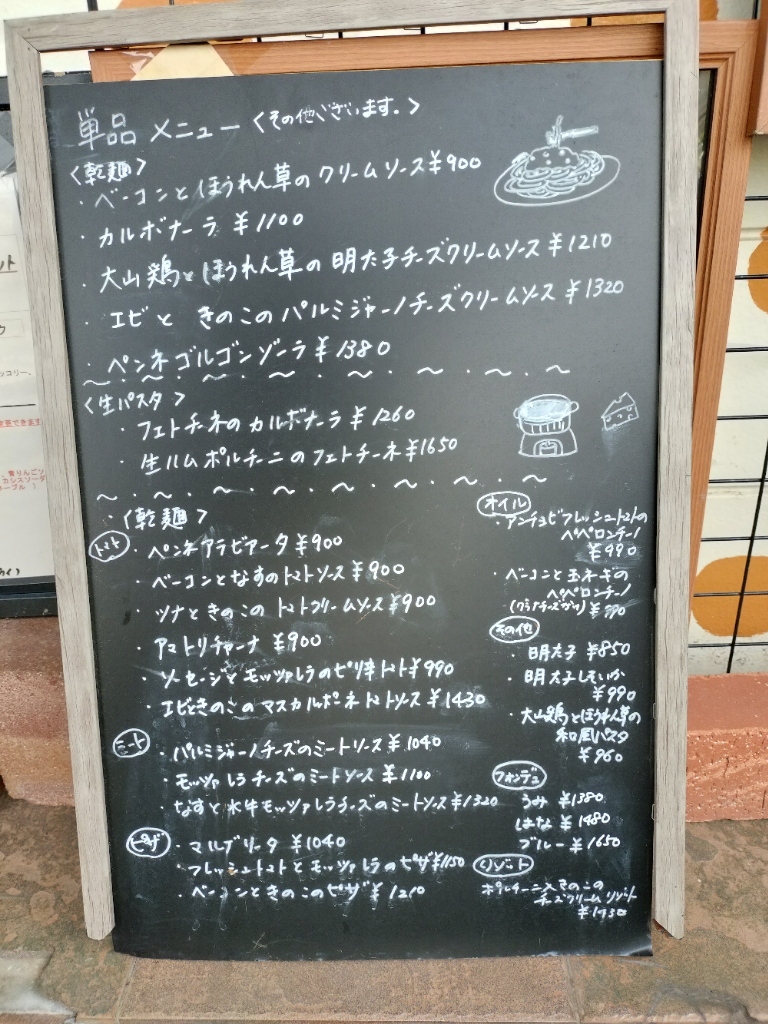 単品 メニュー <その他ございます。>
<乾麺>
・ベーコンとほうれん草のクリームソース¥900
・カルボナーラ ¥1100
・大山鶏とほうれん草の明太子チーズクリームソース ¥1210
・エビと きのこのパルミジャーノチーズクリームソース ¥1320
・ペンネゴルゴンゾーラ ¥1380
〜・〜・〜・〜・〜・〜・〜・〜
<生パスタ>
・フェトチーネのカルボナーラ ¥1260
・生ハムポルチーニのフェトチーネ¥1650
〜・〜・〜・〜・〜・〜・〜・〜
・<乾麺>
トマト
・ペンネアラビアータ ¥900
・ベーコンとなすのトマトソース ¥900
・ツナときのこの トマトクリームソース¥900
・アマトリチャーナ ¥900
・ソーセージとモッツァレラのピリ辛トマト¥990
・エビときのこのマスカルポーネトマトソース ¥1430
ミート
・パルミジャーノチーズのミートソース ¥1040
・モッツァレラチーズのミートソース ¥1100
・なすと水牛モッツァレラチーズのミートソース¥1320
ピザ
・マルゲリータ ¥1040
・フレッシュトマトとモッツァレラのピザ¥1150
・ベーコンときのこのピザ ¥1210
オイル
・アンチョビフレッシュトマトの
ペペロンチーノ
¥990
・ベーコンと玉ネギの
ペペロンチーノ
¥990
その他
・明太子 ¥850
・明太子しそいか
¥990
・大山鶏とほうれん草の
和風パスタ
¥960
フォンデュ
うみ ¥1380
はな ¥1480
ブルー ¥1650
リゾット
ポルチーニ入きのこの
チーズクリームリゾット
¥1430